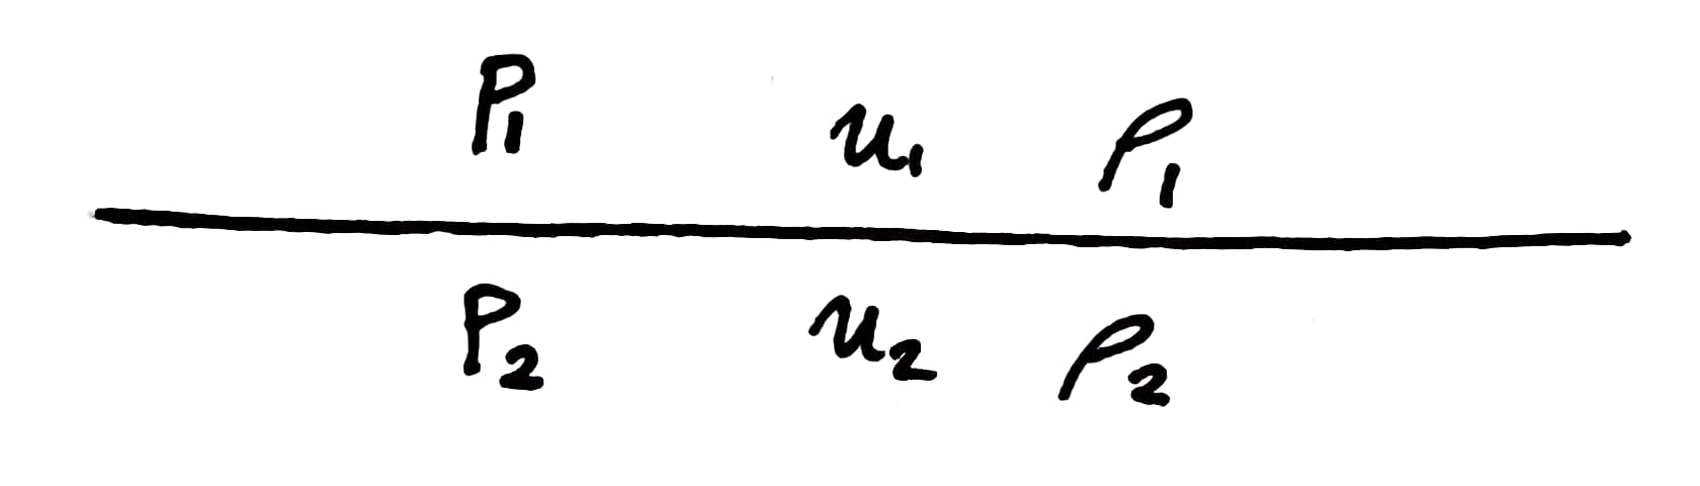 P₁ u₁ ρ₁
P₂ u₂ ρ₂